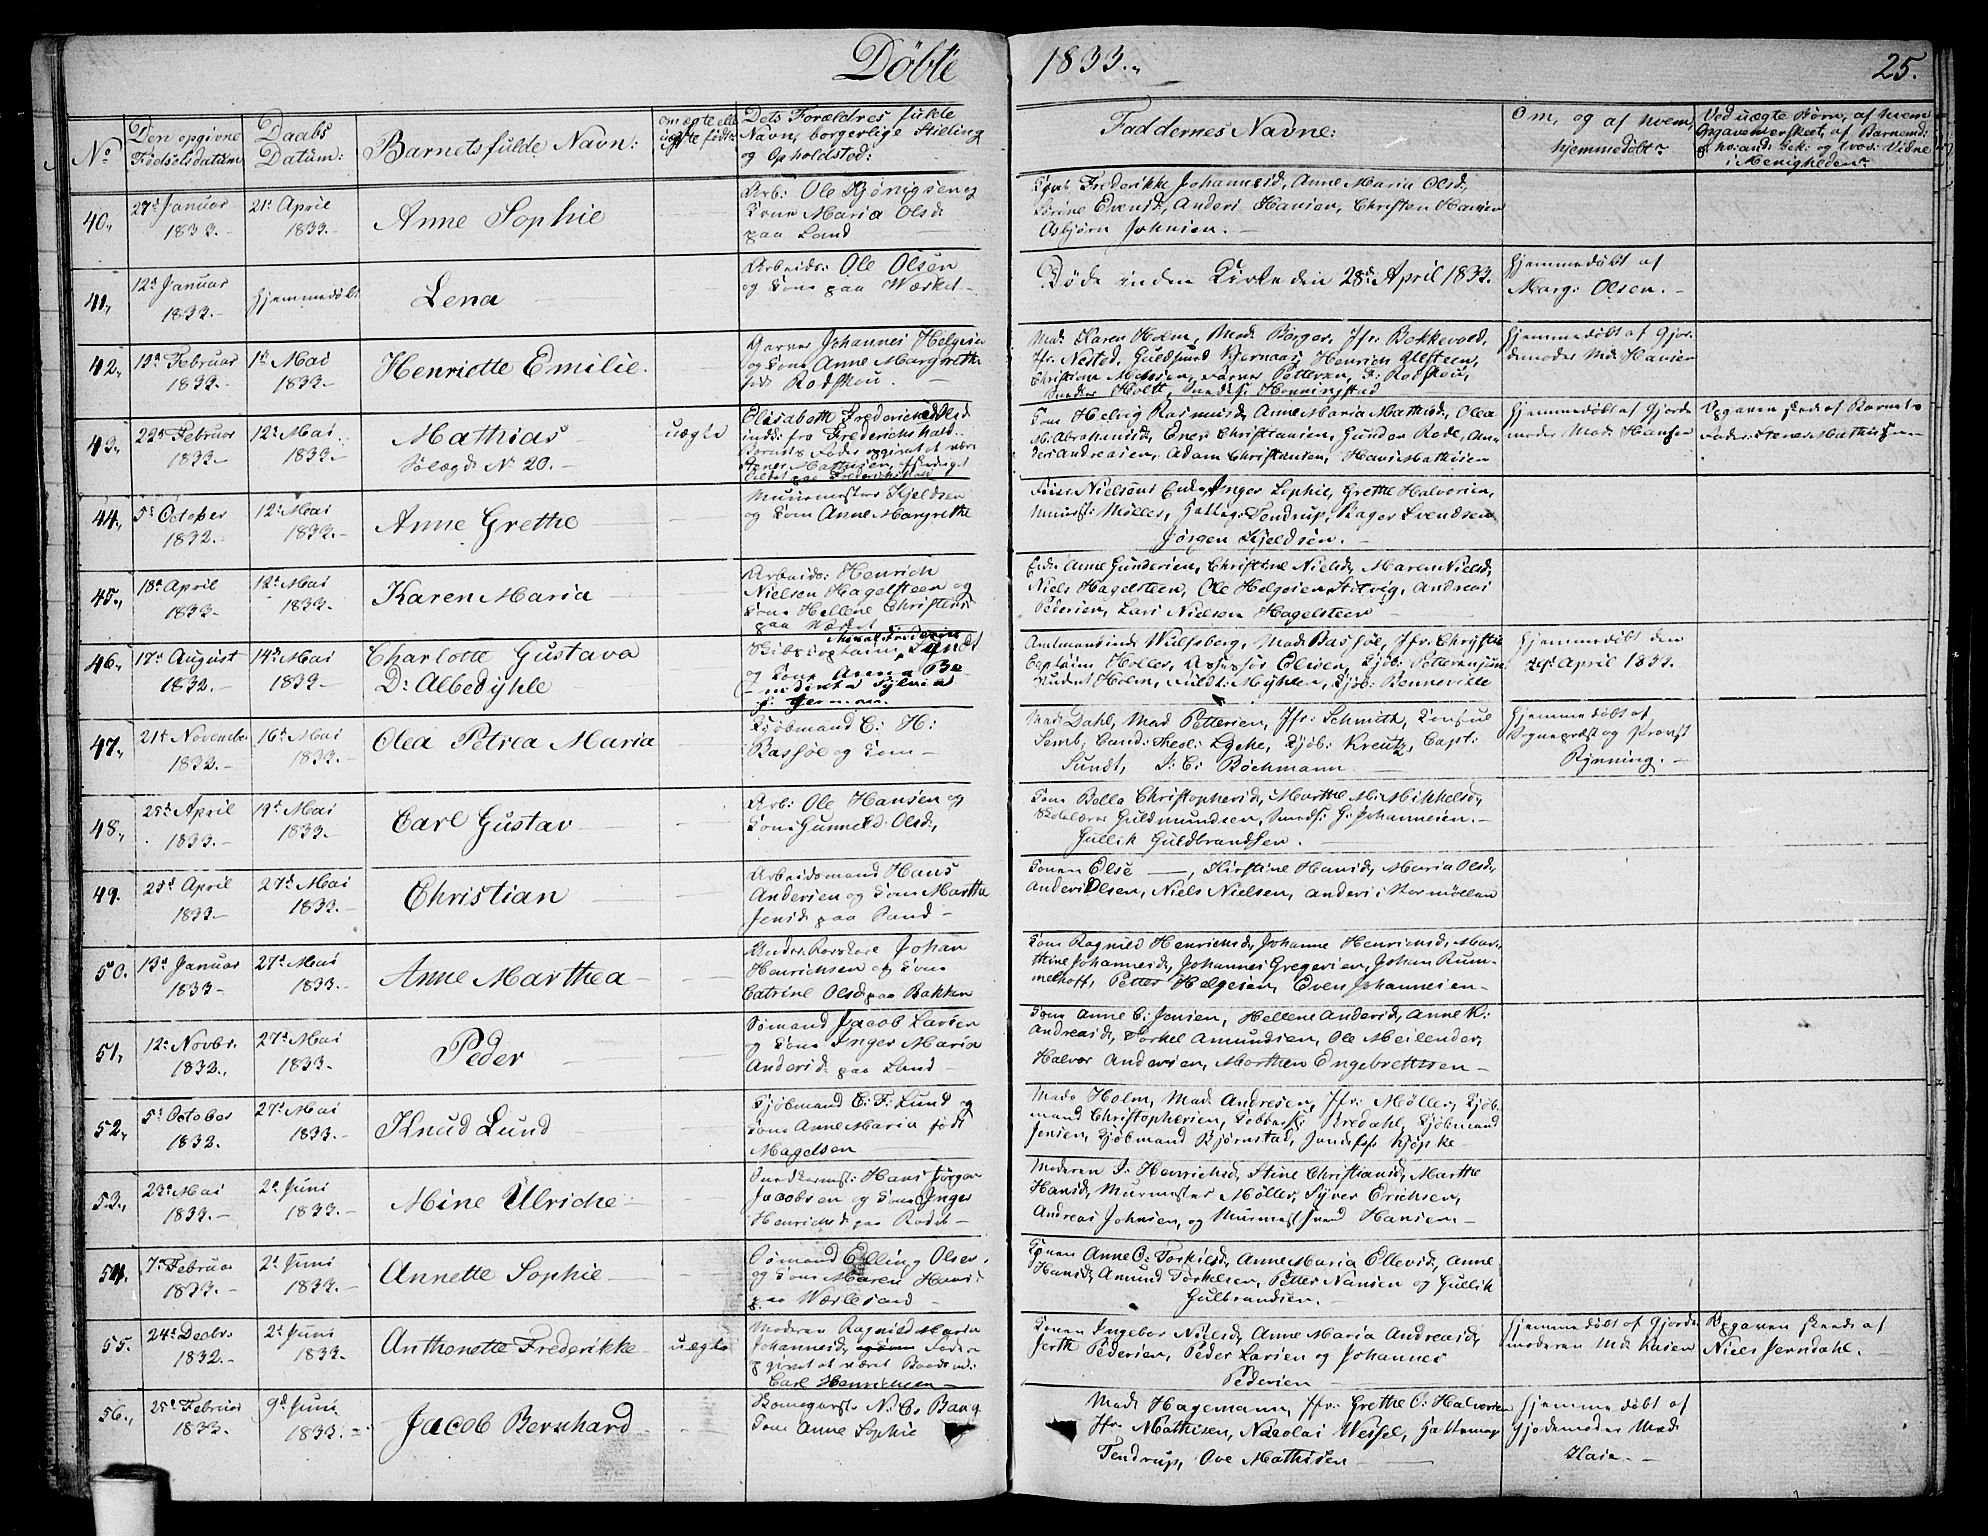 Døbte 1833. 25.
No
Den opgivne Fødselsdatum
Daabs Datum:
Barnets fulde Navn:
Om ægte elle uægte født:
Dets Forældres fulde
Navn, borgerlige Stilling
og Opholdsted:
Faddernes Navne:
Om, og af hvem,
hjemmedøbt.
Ved uægte Børn, af hvem
i Menigheden.
40, 27d Januar 1833.- 21d April 1833.- Anne Sophie
Arb: Ole
Kone Maria Olsd
paa Land
Frederikke Johannesd, Anne Maria Olsd,
Sørine Evensd, Anders Hansen, Christen Hansen
Asbjørn Johnsen.-
41, 12d Januar 1833.- Hjemmedøbt Lena
Arbeids: Ole Olsen
og Kone paa Værket-
Døde inden Kirke den 28d April 1833.
Hjemmedøbt af
Marg: Olsen.-
42, Februar 1833.- 1d Mai 1833.- Henriette Emilie.
Garver Johannes Helgesen
og Kone Anne Margrethe
født Rodskou.
Mad: Karen Holm, Mad: Borger, Jfr: Bakkevold,
Henrich Ulsteen,
Petersen, F: Rodskou,
Holtt, Henningstad
Hjemmedøbt af Gjor-
demoder Md: Hansen
43, 22d Februar 1833.- 12d Mai 1833.- Mathias
Sølægd No 20.-
uægte
Elisabeth Frederichsd
indd: fra Frederichshald
Barnets Fader opgivet at være
Stener Mathisen,
Kone Helvig Rasmusd, Anne Maria Mathisd, Olea
M: Abrahamsd, Ener Christiansen, Gunder Rode, An-
ders Andreasen, Adam Christiansen, Hans Mathisen
Hjemmedøbt af Gjorde
moder Mad: Hansen
Opgaven skede af Barnets
Fader Stener Mathisen-
44, 5d October 1832.- 12d Mai 1833.- Anne Grethe
Muurmester Kjeldsen
og Kone Anne Margrethe
Nielsens Enke, Inger Sophie, Grethe Halvorsen,
Muurmst: Møller, Tendrup, Roger Svendsen
Jørgen Kjeldsen.-
45, 18d April 1833- 12d Mai 1833.- Karen Maria
Arbeids: Henrich
Nielsen Hagelsteen og
Kone Hellene Christensd
paa Værket
Enke Anne Gundersen, Christine Nielsd, Maren Nielsd,
Niels Hagelsteen, Ole Helgesen Andreas
Pedersen, Lars Nielsen Hagelsteen
46, 17d August 1832.- 14d Mai 1833- Charlotte Gustava
D: Albedyhle-
Skibscaptain, Sundt
og Kone Anna Be-
nedicta Sylvia
f:
Amtmandinde Wulfsberg, Mad: Bassøe, Jfr: Christie
Captain Holler, Assessor Olsen, Kjøb: Pettersen
Student Holm, Kjøb: Benneville
Hjemmedøbt den
April 1833.
47, 21d November 1832.- 16d Mai 1833.- Olea Petrea Maria
Kjøbmand C: H:
Bassøe og Kone-
Mad: Dahl, Mad Pettersen, Jfr: Schmith, Consul
Semb, Cand: Theol: Kjøb: Kreutz, Capt:
Sundt, J: C: Bøchmann
Hjemmedøbt af
Sognepræst og Provst
Rynning.-
48, 25d April 1833.- 19d Mai 1833.- Carl Gustav
Arb: Ole Hansen og
Kone Gunnild Olsd,
Kone Bella Christophersd, Marthe M: Mikkelsd,
Skolelærer Guldmundsen, Smeds: G: Johannesen.-
Gullik Guldbrandsen.
49. April 1833.- 27d Mai 1833.- Christian
Arbeidsmand Hans
Andersen og Kone Marthe
Jensd: paa Land-
Konen Else, Kirstine Hansd, Maria Olsd,
Anders Olsen, Niels Nielsen, Anders: Stormøllen
50. 13d Januar 1833- 27d Mai 1833.- Anne Marthea
Johan
Henrichsen og Kone
Catrine Olsd paa Bakken
Kone Ragnild Henrichsd, Johanne Henrichsd, Mar-
thine Johannesd, Johannes Gregersen, Johan Rum-
melhoff, Petter Helgesen, Even Johannesen-
51, 12d Novbr. 1832, 27d Mai 1833- Peder
Sømand Jacob Larsen
og Kone Inger Maria
Andersd: paa Land-
Kone Anne C: Jensen, Hellene Andersd, Anne K:
Andreasd, Torkel Amundsen, Ole Meilender,
Halvor Andersen, Morthen Engebretsen-
52, 5d October 1832. 27d Mai 1833.- Knud Lund
Kjøbmand C: F: Lund og
Kone Anne Maria født
Magelsen
Mad: Holm, Mad Andresen, Jfr: Møller, Kjøb-
mand Christophersen, Bredahl, Kjøbmand
Jensen, Kjøbmand Bjørnstad,
53, Mai 1833.- 2d Juni 1833.- Mine Ulriche-
Hans Jørgen
Jacobsen og Kone Inger
Henrichsd: paa Rødet-
Moderen I: Henrichsd, Stine Christiansd, Marthe
Hansd, Murmester Møller, Syver Erichsen,
Andreas Johnsen, og Murmest: Svend Hansen-
54. 7d Februar 1833. 2d Juni 1833.- Annette Sophie-
Sømand Elling Olsen,
og Kone Maren Hansd
paa Værlesand-
Konen Anne C: Torkilsd, Anne Maria Ellevsd, Anne
Hansd, Amund Torkelsen, Petter Nansen og Gullik
Gulbrandsen.-
55. 24d Decbr. 1832.- 2d Juni 1833. Anthonette Frederikke- uægte
Moderen Ragnild Maria
Johannesd, Fader
opgivet at været Baads md:
Carl Henrichsen-
Konen Ingebor Nielsd, Anne Maria Andreasd,
Pedersen, Peder Larsen og Johannes
Pedersen
Hjemmedøbt af Gjorde-
moderen Md: Hasen
Opgaven skede af
Niels Jerndahl.
56, 25d Februar 1833. 9d Juni 1833.- Jacob Bernhard
N: C: Bang
Kone Anne Sophie
Mad: Hagemann, Jfr: Grethe C: Halvorsen
Jfr: Mathisen, Nicolai Wessel,
Tendrup, Ove Mathisen
Hjemmedøbt af
Gjordemoder Mad:
Hasen.-